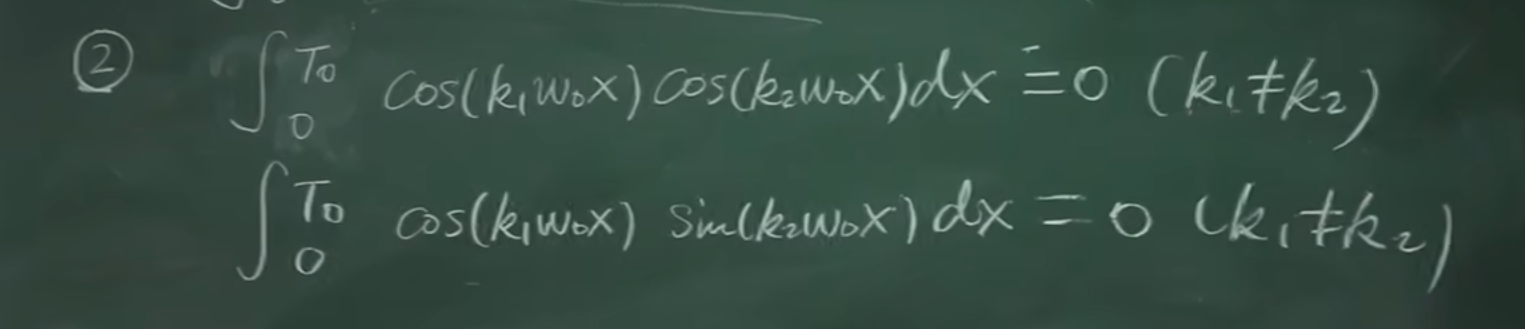 ② ∫₀^T₀ cos(k₁w₀x) cos(k₂w₀x)dx = 0 (k₁≠k₂)
∫₀^T₀ cos(k₁w₀x) sin(k₂w₀x)dx = 0 (k₁≠k₂)